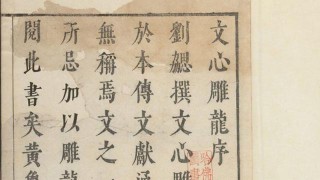 文心雕龍序
劉勰撰文心雕
於本傳文獻通
無稱焉文之一
所忌加以雕龍
閱此書矣黃魯